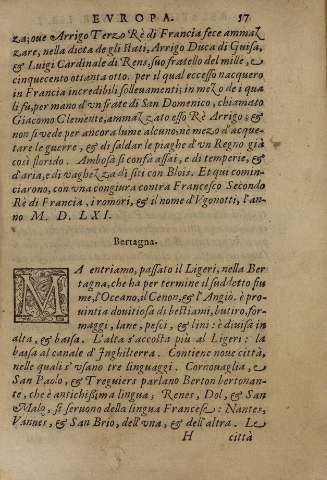 EVROPA. 57
za; oue Arrigo Terzo Rè di Francia fece ammaz
zare, nella dieta de gli stati, Arrigo Duca di Guisa,
& Luigi Cardinale di Rens, suo fratello del mille,
cinquecento ottanta otto. per il qual eccesso nacquero
in Francia incredibili solleuamenti; in mezo de i qua
li fù, per mano d'vn frate di San Domenico, chiamato
Giacomo Clemente, ammazzato esso Rè Arrigo; &
non si vede per ancora lume alcuno, nè mezo d'acque-
tare le guerre, & di saldar le piaghe d'vn Regno già
così florido. Ambosa si confà assai, e di temperie, &
d'aria, e di vaghezza di siti con Blois. Et qui comin-
ciarono, con vna congiura contra Francesco Secondo
Rè di Francia, i romori, & il nome d'Vgonotti, l'an-
no M. D. LXI.
Bertagna.
MA entriamo, passato il Ligeri, nella Ber
tagna, che ha per termine il suddetto fiu
me, l'Oceano, il Cenon, & l'Angiò. è pro-
uintia douitiosa di bestiami, butiro, for-
maggi, lane, pesci, & lini: è diuisa in
alta, & bassa. L'alta s'accosta più al Ligeri: la
bassa al canale d'Inghilterra. Contiene noue città,
nelle quali s'vsano tre linguaggi. Cornouaglia, &
San Paolo, & Treguiers parlano Berton bertonan-
te, che è antichissima lingua; Renes, Dol, & San
Malo, si seruono della lingua Francese: Nantes,
Vannes, & San Brio, dell'vna, & dell'altra. Le
H città